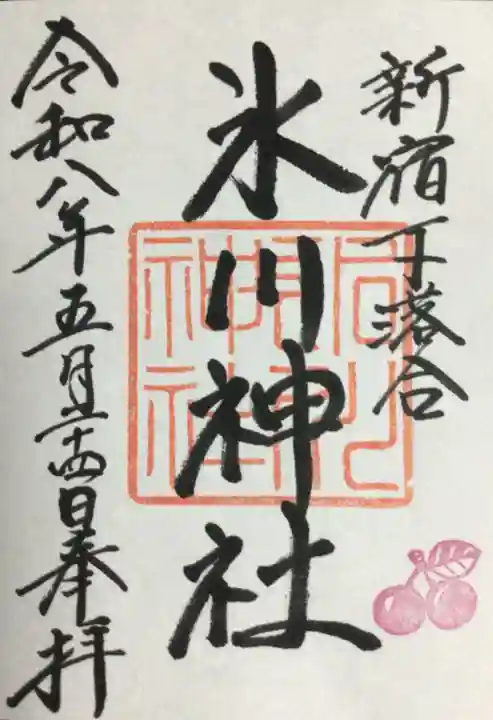 新宿下落合
氷川神社
令和八年五月二十四日奉拝